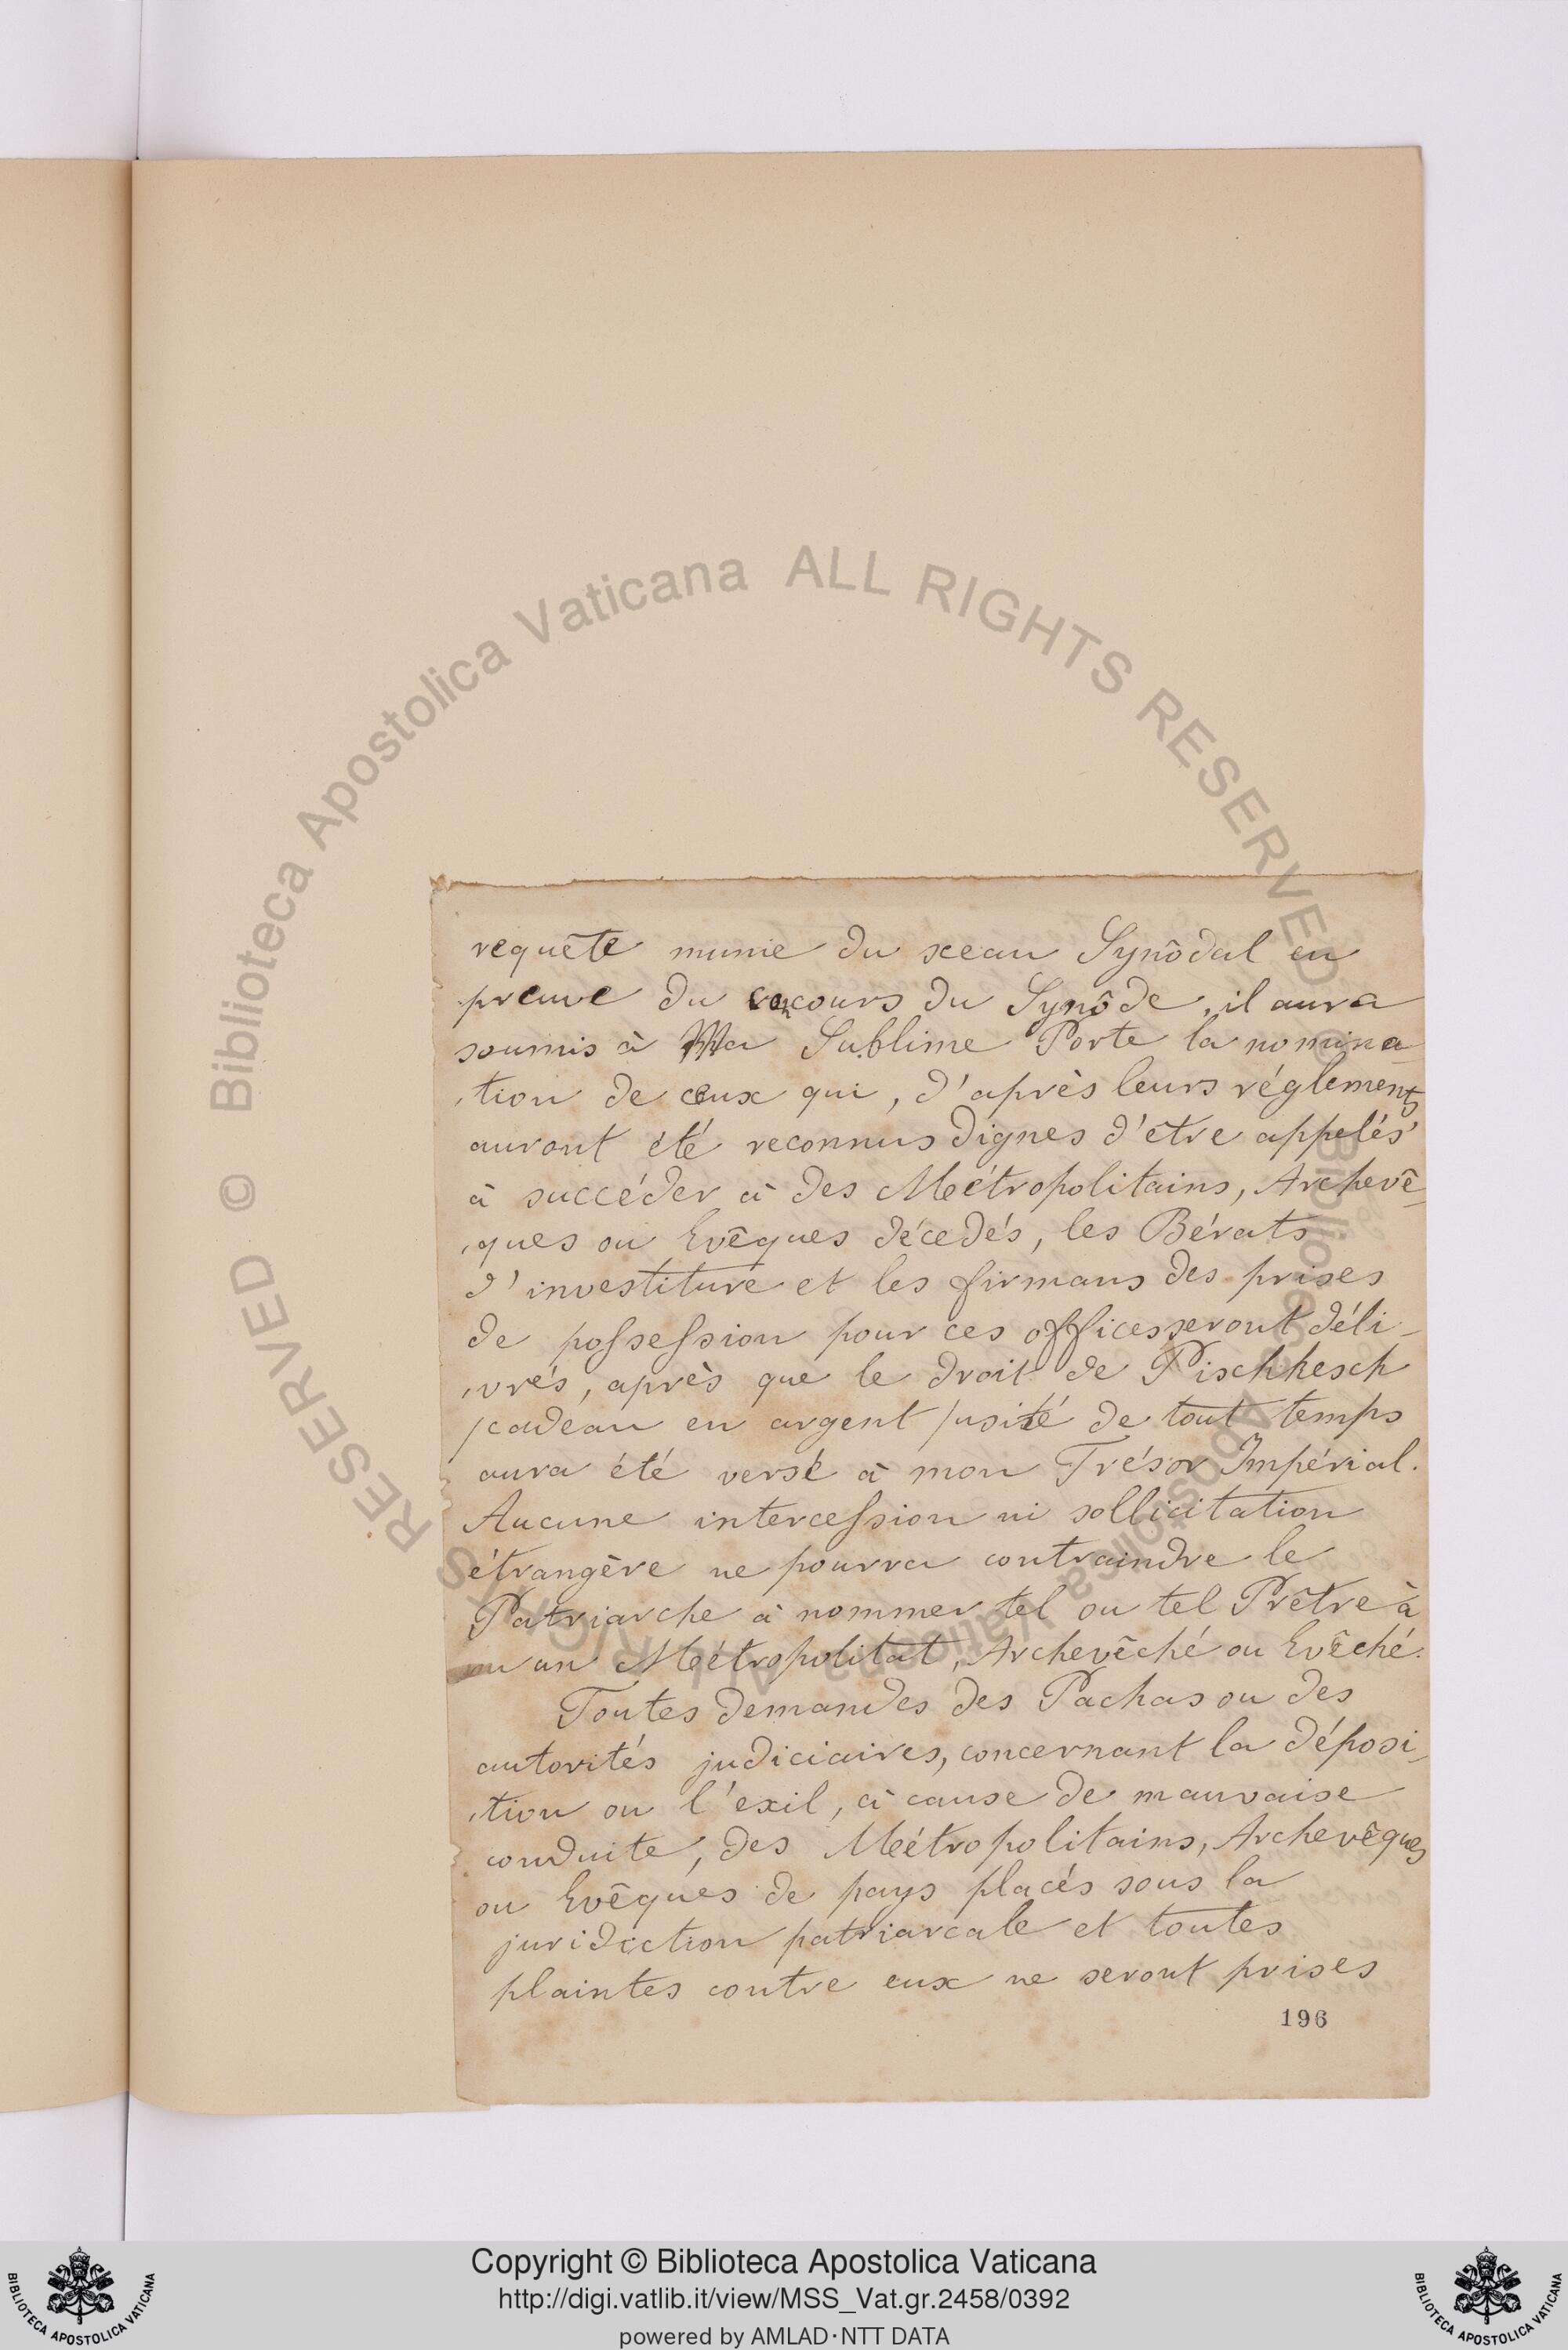 requête munie du sceau Synôdal en
preuve du concours du Synôde, il aura
soumis à Ma Sublime Porte la nomina
tion de ceux qui, d'après leurs réglements
auront été reconnus dignes d'être appelés
à succéder à des Métropolitains, Archevê-
ques ou Evêques décedés, les Bérats
d'investiture et les firmans des prises
de possession pour ces offices seront déli-
vrés, après que le droit de Pischkesch
/cadeau en argent/ usité de tout temps
aura été versé à mon Trésor Impérial.
Aucune intercession ni sollicitation
étrangère ne pourra contraindre le
Patriarche à nommer tel ou tel Prêtre à
un Métropolitat, Archevêché ou Evêché.
Toutes demandes des Pachas ou des
autorités judiciaires, concernant la déposi-
tion ou l'exil, à cause de mauvaise
conduite, des Métropolitains, Archevêques
ou Evêques de pays placés sous la
juridiction patriarcale et toutes
plaintes contre eux ne seront prises
196
Biblioteca Apostolica Vaticana ALL RIGHTS RESERVED ©
Copyright © Biblioteca Apostolica Vaticana
http://digi.vatlib.it/view/MSS_Vat.gr.2458/0392
powered by AMLAD·NTT DATA
BIBLIOTECA APOSTOLICA VATICANA
BIBLIOTECA APOSTOLICA VATICANA